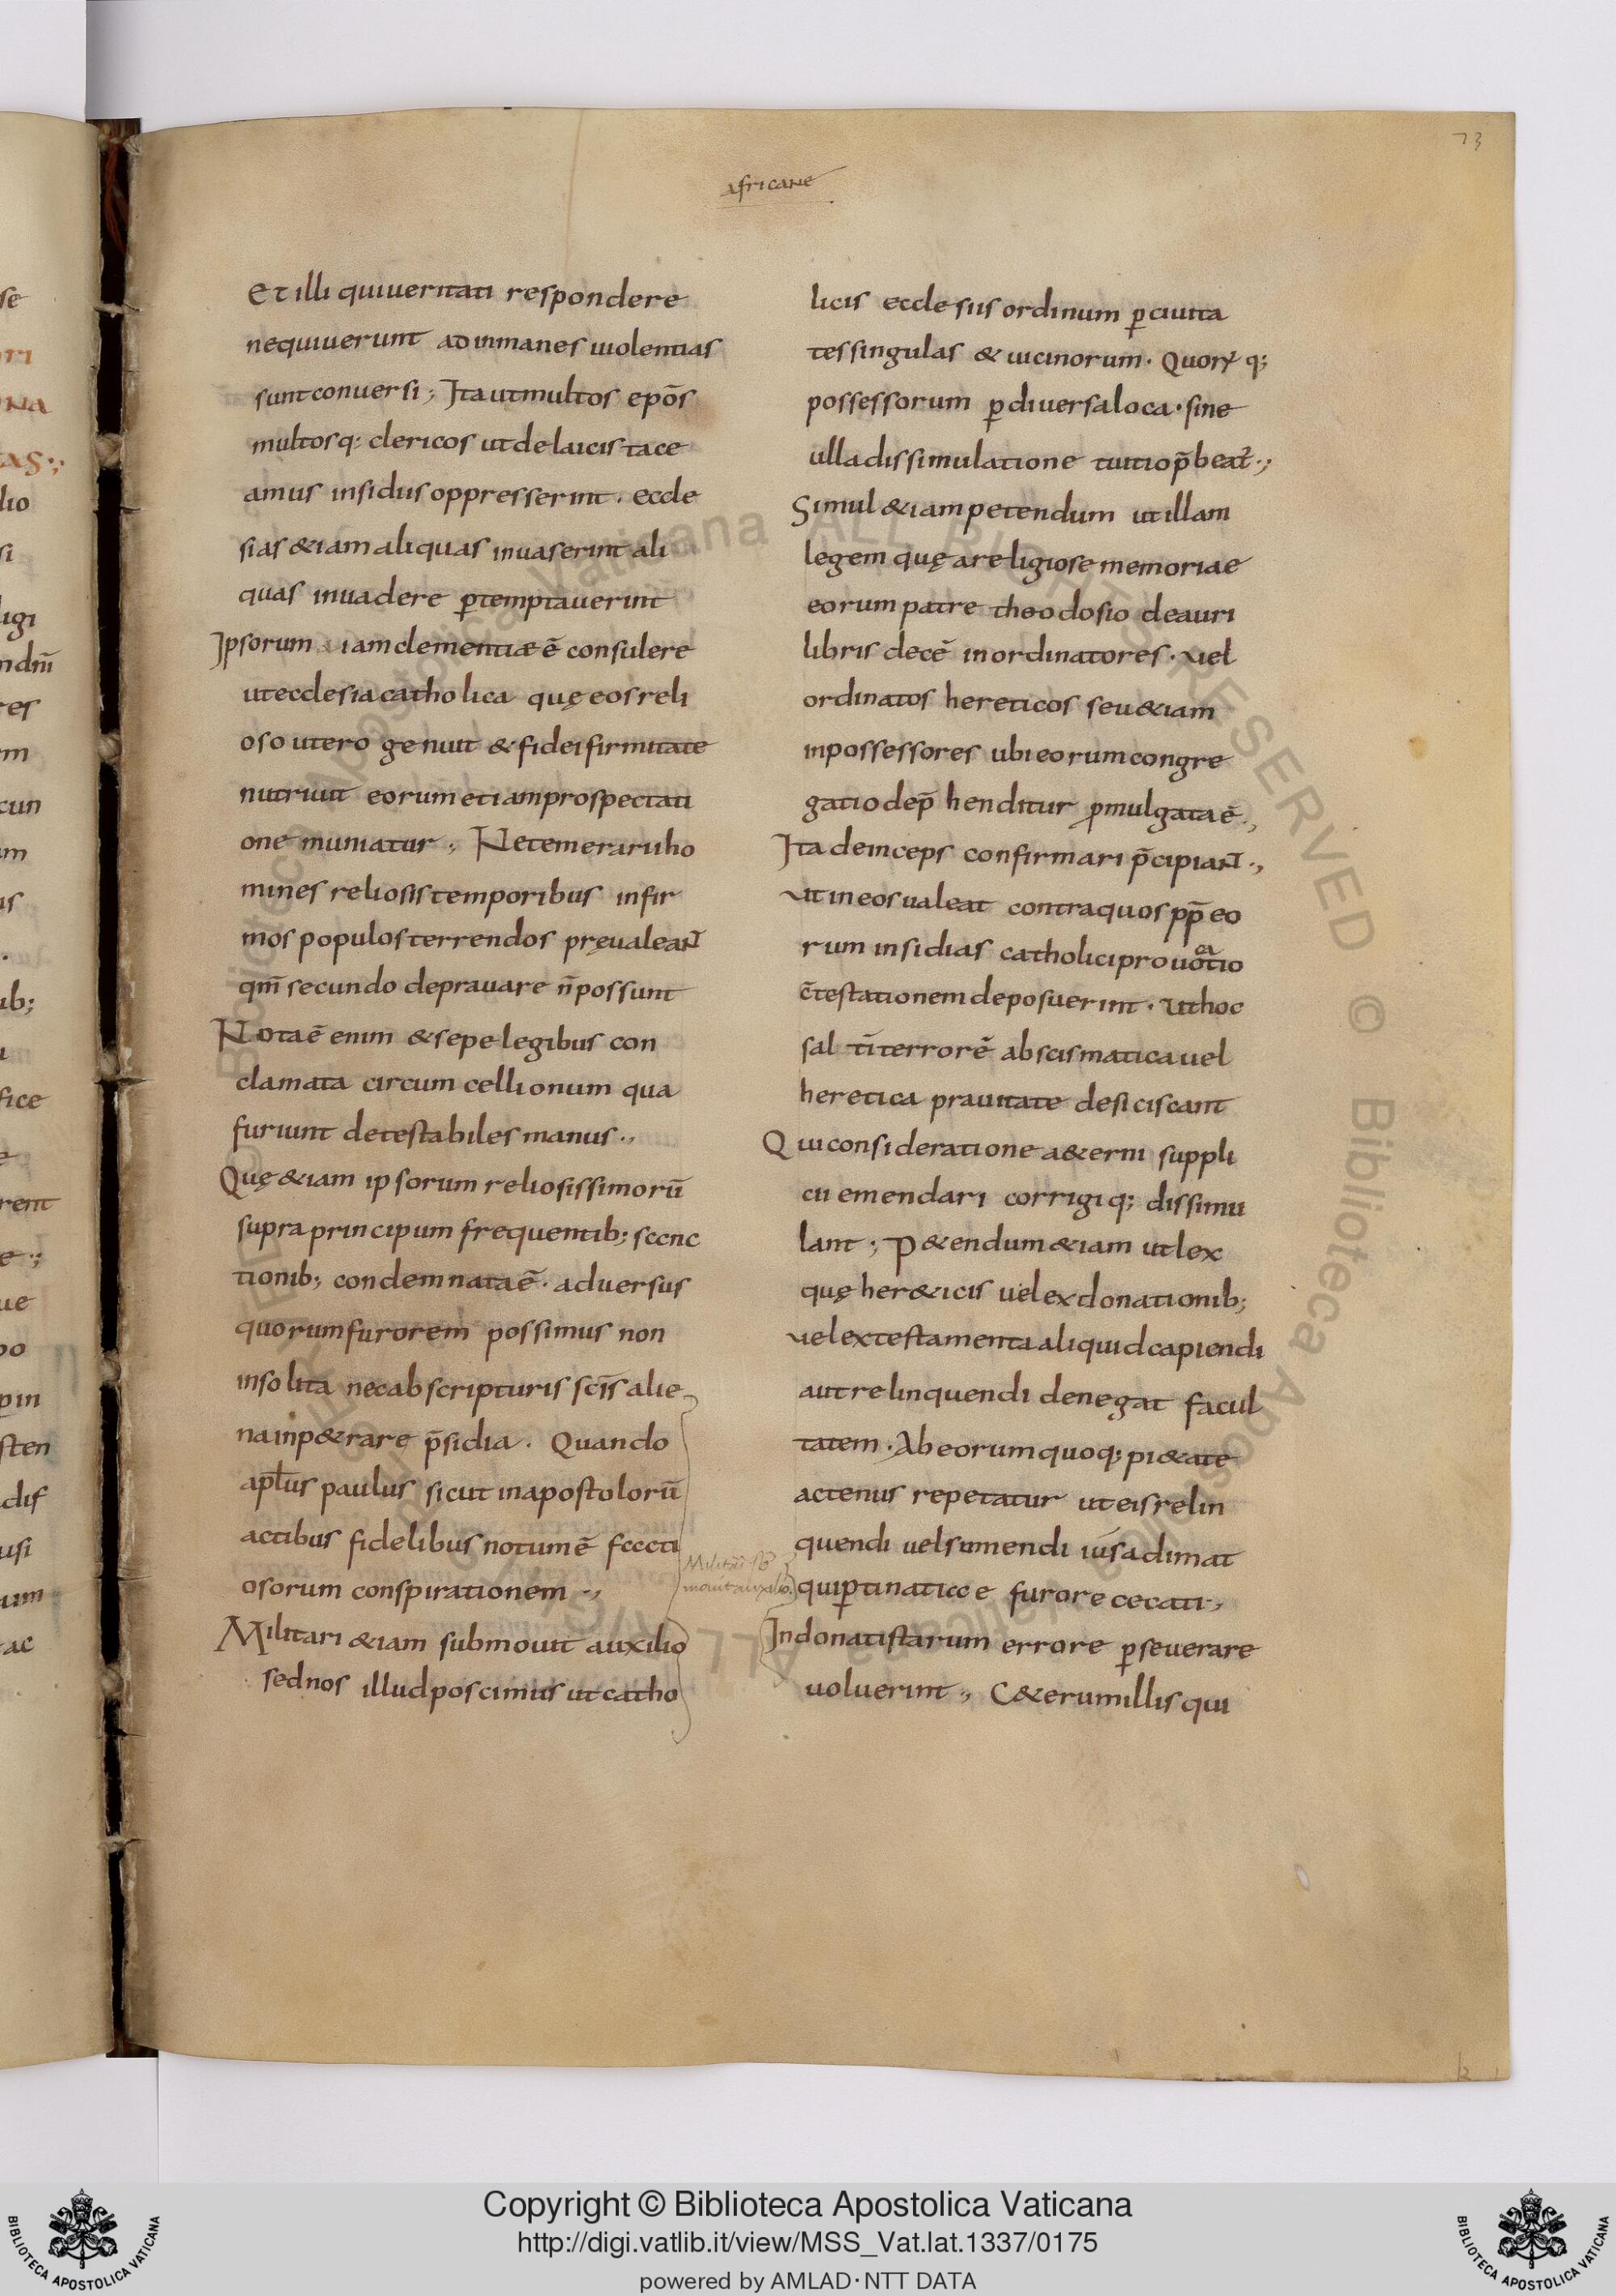 73
africane
Et illi qui ueritati respondere
nequiuerunt ad inmanes uiolentias
sunt conuersi; Ita ut multos ep̄os
multosq; clericos ut de laicis tace
amus insidiis oppresserint. eccle
sias &iam aliquas inuaserint ali
quas inuadere ꝑtemptauerint
Ipsorum iam clementiæ ē consulere
ut ecclesia catholica quę eos reli
oso utero genuit & fidei firmitate
nutriuit eorum etiam prospectati
one muniatur; Ne temerarii ho
mines reliosis temporibus infir
mos populos terrendos pręualeant
qm̄ secundo deprauare n̄ possunt
Nota ē enim & sepe legibus con
clamata circum cellionum qua
furiunt detestabiles manus.,
Quę &iam ipsorum reliosissimorū
supra principum frequentib; sccnc
tionib; condemnata ē. aduersus
quorum furorem possimus non
insolita nec ab scripturis sc̄is alie
na inp&rare p̄sidia. Quando
apl̄us paulus sicut in apostolorū
actibus fidelibus notum ē fccct
osorum conspirationem.,
Militari &iam submouit auxilio
sed nos illud poscimus ut catho
licis ecclesiis ordinum ꝑ ciuita
tes singulas & uicinorum. Quorꝝ q;
possessorum ꝑ diuersa loca. sine
ulla dissimulatione tuitio p̄beat̄.;
Simul &iam petendum ut illam
legem quę a religiose memoriae
eorum patre theodosio de auri
libris decē in ordinatores. uel
ordinatos hereticos seu &iam
in possessores ubi eorum congre
gatio dep̄henditur ꝓmulgata ē.,
Ita deinceps confirmari p̄cipiant.,
ut in eos ualeat contra quos pp̄ eo
rum insidias catholici prouotio
c̄testationem deposuerint. ut hoc
sal tī terrorē ab scismatica uel
heretica prauitate desiciscant
Qui consideratione a&erni suppli
cii emendari corrigiq; dissimu
lant; P&endum &iam ut lex
quę her&icis uel ex donationib;
uel ex testamenta aliquid capiendi
aut relinquendi denegat facul
tatem. Ab eorum quoq; pi&ate
actenus repetatur ut eis relin
quendi uel sumendi ius adimat
qui ꝑtinaticce furore cecati.,
In donatistarum errore ꝑseuerare
uoluerint., C&erum illis qui
Copyright © Biblioteca Apostolica Vaticana
http://digi.vatlib.it/view/MSS_Vat.lat.1337/0175
powered by AMLAD·NTT DATA